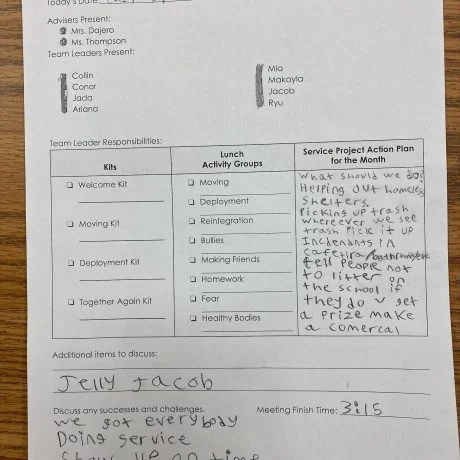 Today's Date:
Advisers Present:
Mrs. Dajero
Ms. Thompson
Team Leaders Present:
Collin
Conor
Jada
Ariana
Mia
Makayla
Jacob
Ryu
Team Leader Responsibilities:
Kits
Welcome Kit
Moving Kit
Deployment Kit
Together Again Kit
Lunch
Activity Groups
Moving
Deployment
Reintegration
Bullies
Making Friends
Homework
Fear
Healthy Bodies
Service Project Action Plan
for the Month
What should we do?
Helping out homeless
shelters.
Picking up trash
whereever we see
trash pick it up
Incdenants in
cafetira/bathrooms etc
tell people not
to litter on
the school if
they do u get
a prize make
a comercal
Additional items to discuss:
Jelly Jacob
Discuss any successes and challenges.
Meeting Finish Time: 3:15
we got everybody
Doing service
show up on time